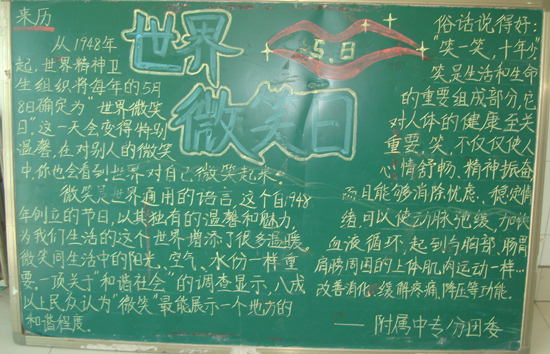 来历
世界
微笑日
5.8
从1948年
起,世界精神卫
生组织将每年的5月
8日确定为“世界微笑
日”。这一天会变得特别
温馨,在对别人的微笑
中,你也会看到世界对自己微笑起来。
微笑是世界通用的语言,这个自1948
年创立的节日,以其独有的温馨和魅力,
为我们生活的这个世界增添了很多温暖。
微笑同生活中的阳光、空气、水份一样重
要。一项关于“和谐社会”的调查显示,八成
以上民众认为“微笑”最能展示一个地方的
和谐程度。
俗话说得好:
笑一笑,十年少
笑是生活和生命
的重要组成部分,它
对人体的健康至关
重要。笑,不仅仅使人
心情舒畅、精神振奋
而且能够消除忧虑、稳定情
绪,可以使动脉弛缓,加快
血液循环,起到与胸部、肠胃
肩膀周围的上体肌肉运动一样...
改善消化、缓解疼痛、降压等功能。
——附属中专分团委